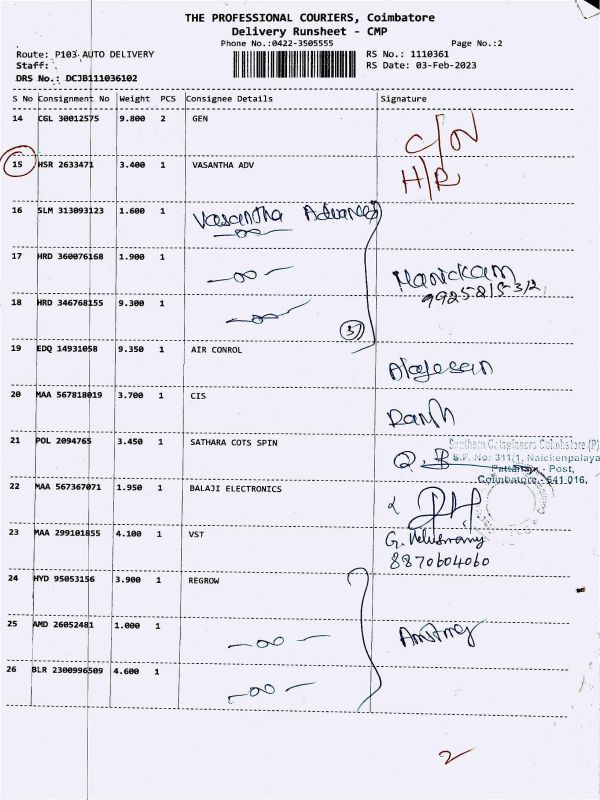 THE PROFESSIONAL COURIERS, Coimbatore
Delivery Runsheet - CMP
Phone No.:0422-3505555 Page No.:2
Route: P103 AUTO DELIVERY RS No.: 1110361
Staff: RS Date: 03-Feb-2023
DRS No.: DCJB111036102
S No Consignment No Weight PCS Consignee Details Signature
14 CGL 30012575 9.800 2 GEN C/N
15 HSR 2633471 3.400 1 VASANTHA ADV H/R
16 SLM 313093123 1.600 1 Vasantha
17 HRD 360076168 1.900 1 Manickam
18 HRD 346768155 9.300 1 3
19 EDQ 14931058 9.350 1 AIR CONROL
20 MAA 567818019 3.700 1 CIS
21 POL 2094765 3.450 1 SATHARA COTS SPIN
Coimbatore (P)
S.F. No: 311/1, Naickenpalaya
Post,
Coimbatore - 641 016.
22 MAA 567367071 1.950 1 BALAJI ELECTRONICS
23 MAA 299101855 4.100 1 VST G.
8870604060
24 HYD 95053156 3.900 1 REGROW
25 AMD 26052481 1.000 1
26 BLR 2300996509 4.600 1
2